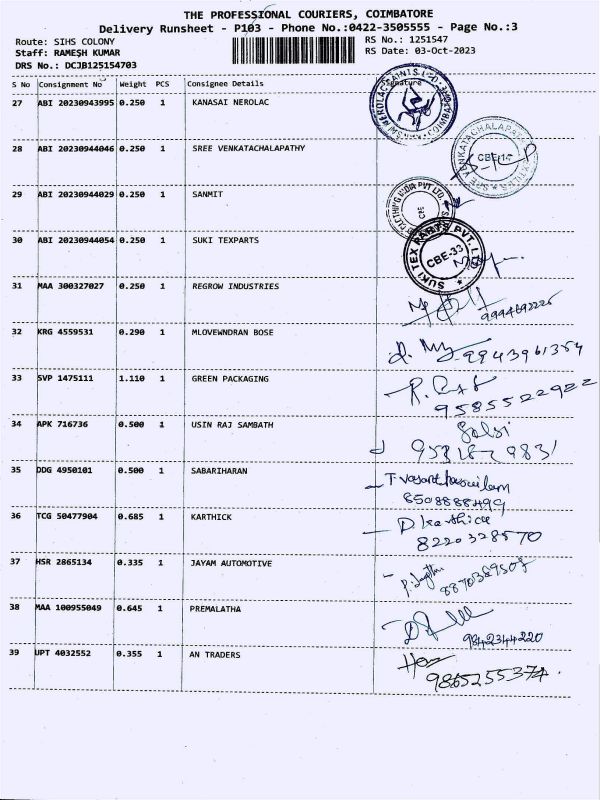 THE PROFESSIONAL COURIERS, COIMBATORE
Delivery Runsheet - P103 - Phone No.:0422-3505555 - Page No.:3
Route: SIHS COLONY RS No.: 1251547
Staff: RAMESH KUMAR RS Date: 03-Oct-2023
DRS No.: DCJB125154703
S No Consignment No Weight PCS Consignee Details Signature
27 ABI 20230943995 0.250 1 KANASAI NEROLAC
28 ABI 20230944046 0.250 1 SREE VENKATACHALAPATHY
CBE-14
29 ABI 20230944029 0.250 1 SANMIT
CLOTHING INDIA PVT LTD
CBE
30 ABI 20230944054 0.250 1 SUKI TEXPARTS
SUKI TEX PARTS PVT. LTD
CBE-33
31 MAA 300327027 0.250 1 REGROW INDUSTRIES
32 KRG 4559531 0.290 1 MLOVEWNDRAN BOSE
9943961354
33 SVP 1475111 1.110 1 GREEN PACKAGING
9585522922
34 APK 716736 0.500 1 USIN RAJ SAMBATH
Selvi
35 DDG 4950101 0.500 1 SABARIHARAN
8508888499
36 TCG 50477904 0.685 1 KARTHICK
D. Karthick
8220328570
37 HSR 2865134 0.335 1 JAYAM AUTOMOTIVE
38 MAA 100955049 0.645 1 PREMALATHA
9842344220
39 UPT 4032552 0.355 1 AN TRADERS
9865255374